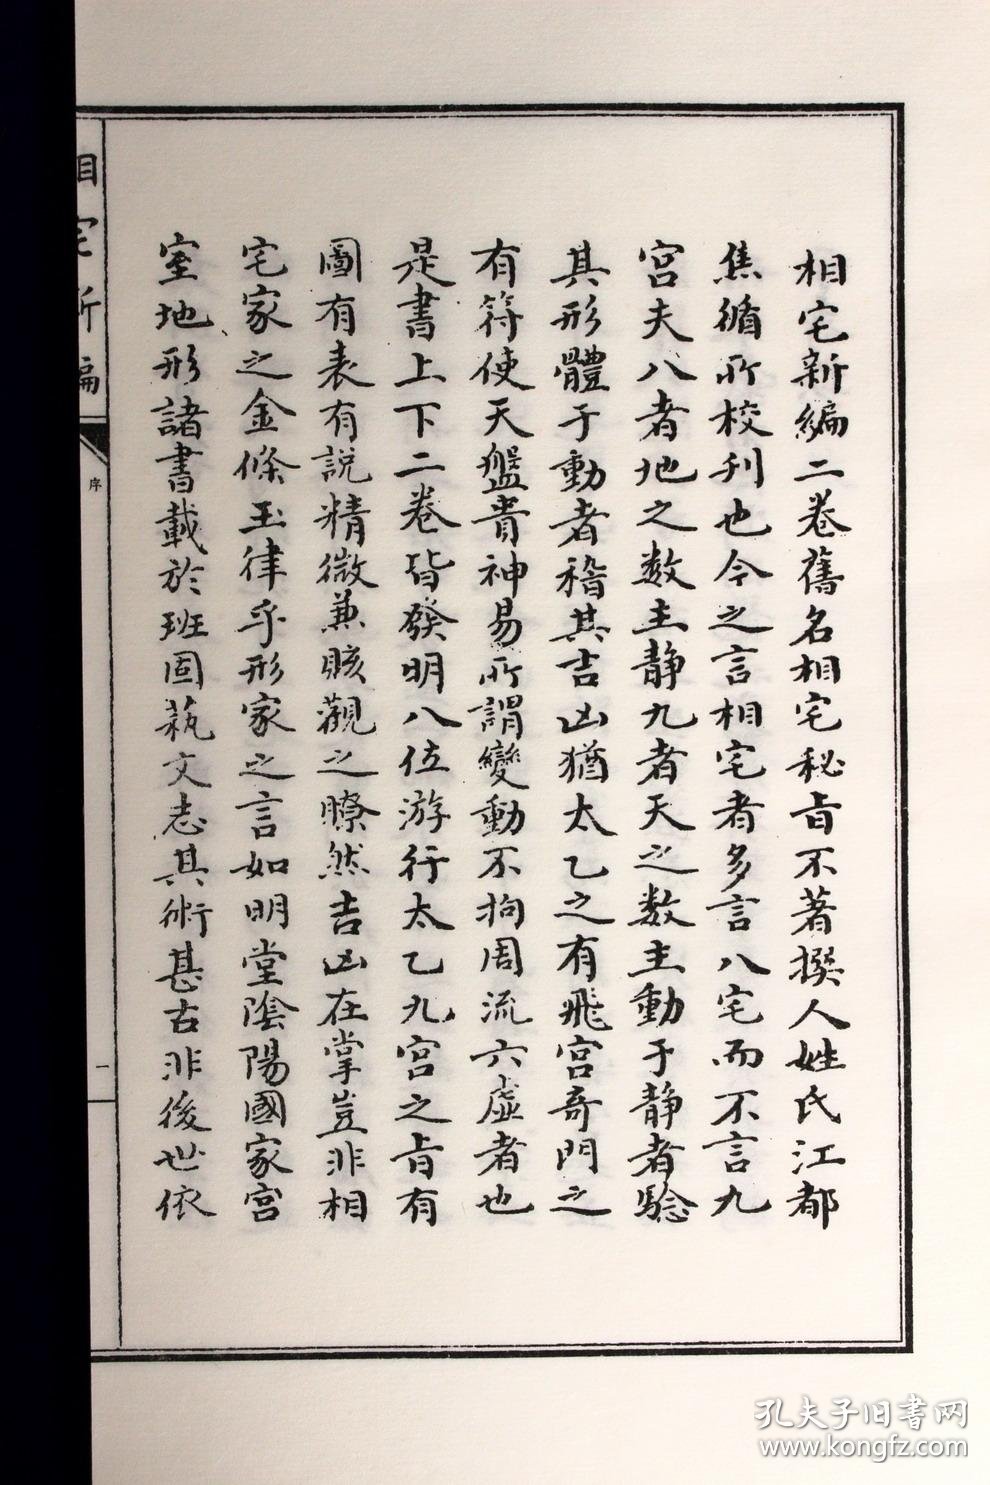 相宅新編二卷舊名相宅秘旨不著撰人姓氏江都
焦循所校刊也今之言相宅者多言八宅而不言九
宮夫八者地之数主静九者天之数主動于静者驗
其形體于動者稽其吉凶猶太乙之有飛宮奇門之
有符使天盤貴神易所謂變動不拘周流六虛者也
是書上下二卷皆發明八位游行太乙九宮之旨有
圖有表有説精微兼賅觀之瞭然吉凶在掌豈非相
宅家之金條玉律乎形家之言如明堂陰陽國家宮
室地形諸書載於班固蓺文志其術甚古非後世依
相宅新編
序
一
孔夫子旧書网
www.kongfz.com